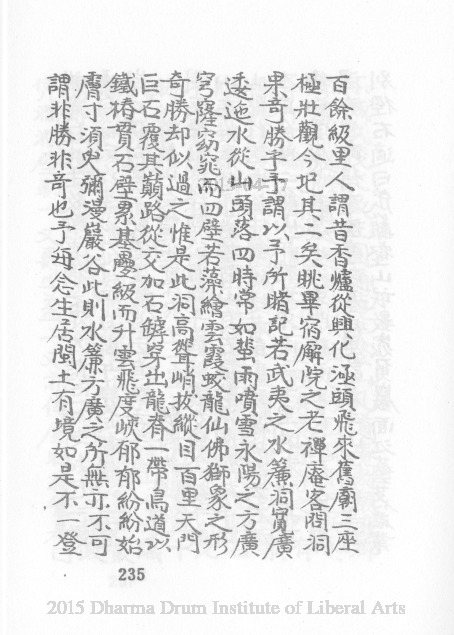 百餘級里人謂昔香爐從興化涵頭飛來舊廟三座
極壯觀今圯其二矣眺畢宿解院之老禪庵客問洞
果奇勝乎予謂以予所睹記若武夷之水簾洞寬廣
逶迤水從山頭落四時常如蜚雨噴雪永陽之方廣
穹窿窈窕而四壁若藻繪雲霞蛟龍仙佛獅象之形
奇勝却似過之惟是此洞高聳峭拔縱目百里天門
巨石覆其巔路從交加石饒穿出龍脊一帶鳥道以
鐵樁貫石壁累基疊級而升雲飛度峽郁郁紛紛始
膚寸須臾彌漫巖谷此則水簾方廣之所無亦不可
謂非勝非奇也予每念生居閩土有境如是不一登
235
2015 Dharma Drum Institute of Liberal Arts